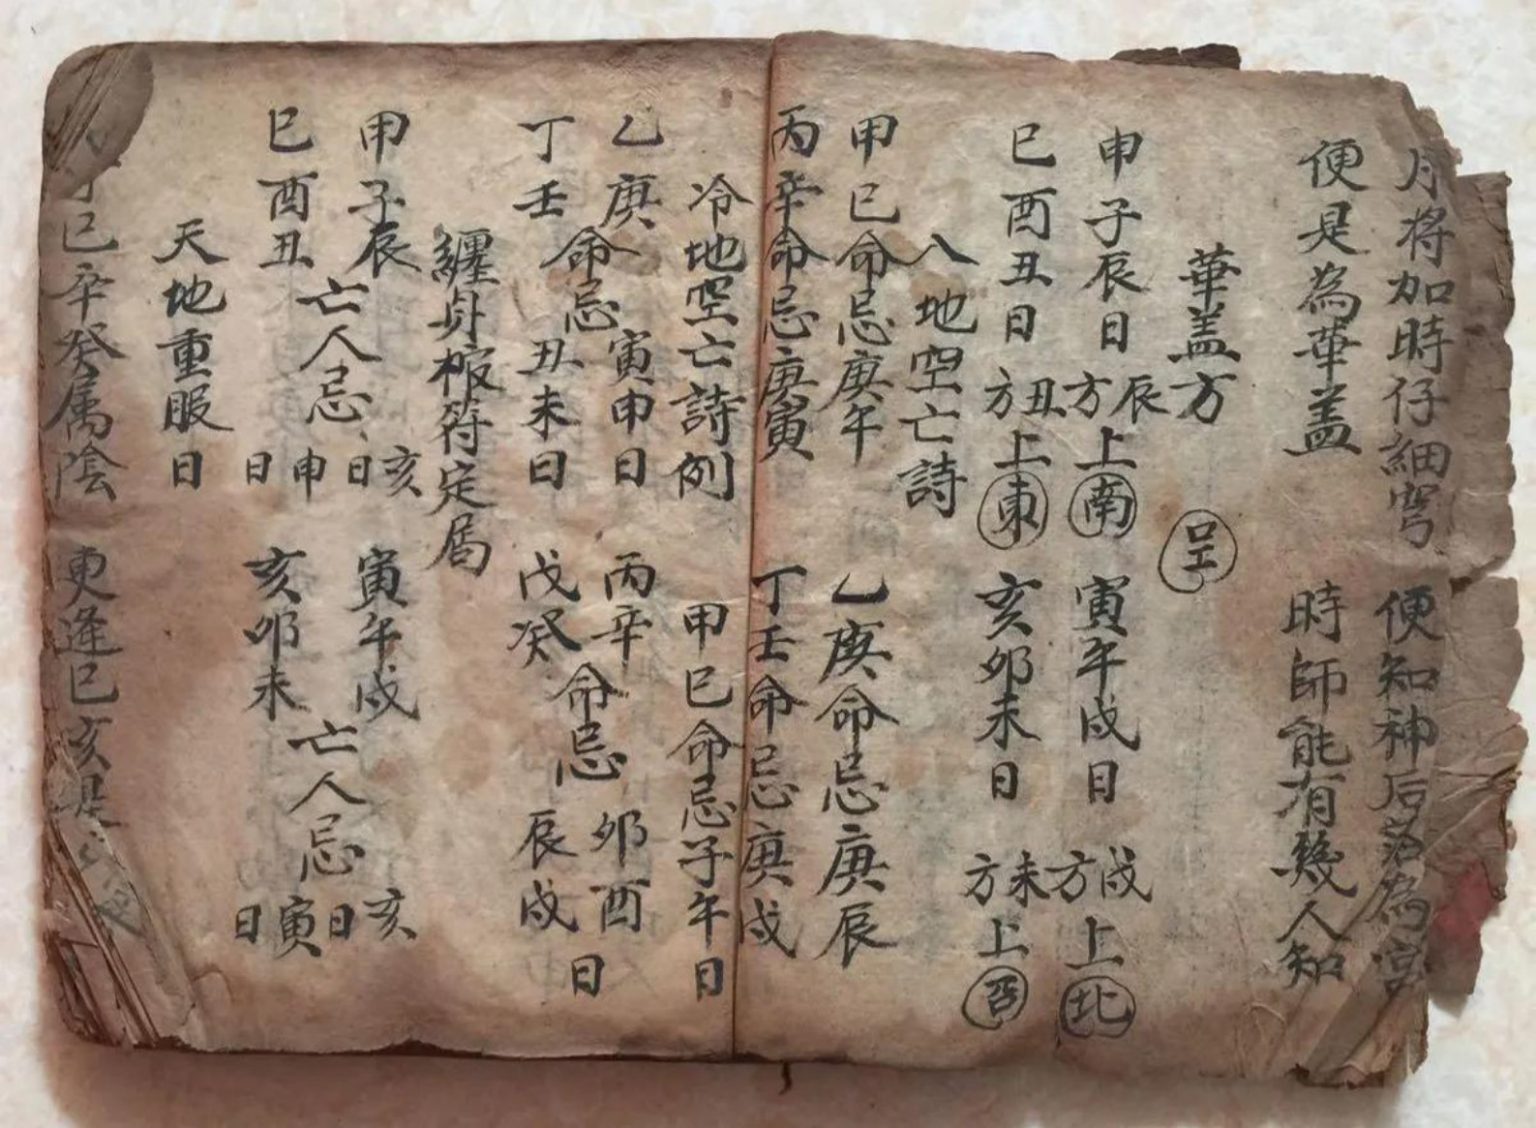 月將加時仔細穹 便知神后落為宮
便是為華蓋 時師能有幾人知
華盖方
申子辰日辰方上南 寅午戌日戌方上北
巳酉丑日丑方上東 亥卯未日未方上
八地空亡詩
甲己命忌庚午 乙庚命忌庚辰
丙辛命忌庚寅 丁壬命忌庚戌
冷地空亡詩例 甲己命忌子午日
乙庚 寅申日 丙辛 卯酉
命忌 命忌 日
丁壬 丑未日 戊癸 辰戌
纏身棺符定局
申子辰 亥日 寅午戌 亥日
亡人忌 亡人忌
巳酉丑 申日 亥卯未 寅日
天地重服日
巳辛癸属陰 更逢巳亥是